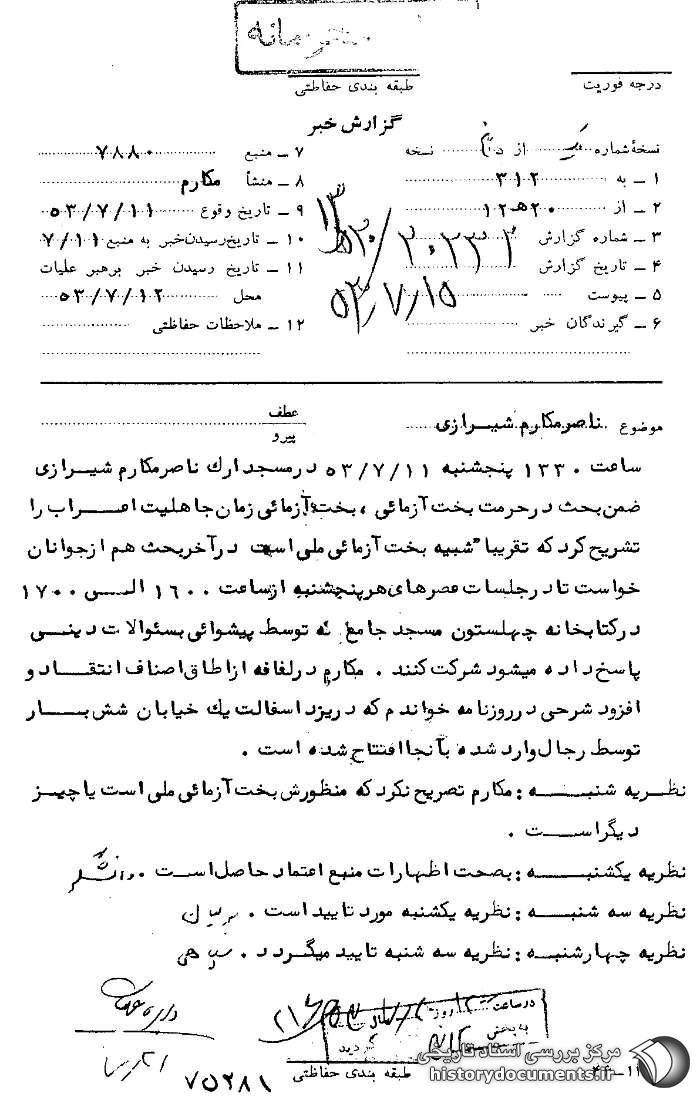 محرمانه
درجه فوریت
طبقه بندی حفاظتی
گزارش خبر
نسخهٔ شماره یک از نسخه
۱ ـ به ۳۱۲
۲ ـ از ۲۰ هـ ۱۲
۳ ـ شماره گزارش
۴ ـ تاریخ گزارش ۵۳/۷/۱۵
۵ ـ پیوست
۶ ـ گیرندگان خبر
۷ ـ منبع ۷۸۸۰
۸ ـ منشأ مکارم
۹ ـ تاریخ وقوع ۵۳/۷/۱۱
۱۰ ـ تاریخ رسیدن خبر به منبع ۷/۱۱
۱۱ ـ تاریخ رسیدن خبر برهبر عملیات
محل ۵۳/۷/۱۲
۱۲ ـ ملاحظات حفاظتی
موضوع ناصر مکارم شیرازی
عطف
پیرو
ساعت ۱۳۳۰ پنجشنبه ۵۳/۷/۱۱ در مسجد ارك ناصر مکارم شیرازی
ضمن بحث در حرمت بخت آزمائی ، بخت آزمائی زمان جاهلیت اعراب را
تشریح کرد که تقریبا" شبیه بخت آزمائی ملی است در آخر بحث هم از جوانان
خواست تا در جلسات عصرهای هر پنجشنبه از ساعت ۱۶۰۰ الی ۱۷۰۰
در کتابخانه چهلستون مسجد جامع که توسط پیشوائی بسئوالات دینی
پاسخ داده میشود شرکت کنند . مکارم در لفافه از اطاق اصناف انتقاد و
افزود شرحی در روزنامه خواندم که در یزد اسفالت یك خیابان شش بار
توسط رجال وارد شده بآنجا افتتاح شده است .
نظریه شنبه : مکارم تصریح نکرد که منظورش بخت آزمائی ملی است یا چیز
دیگر است .
نظریه یکشنبه : بصحت اظهارات منبع اعتماد حاصل است .
نظریه سه شنبه : نظریه یکشنبه مورد تایید است .
نظریه چهارشنبه : نظریه سه شنبه تایید میگردد .
در ساعت روز
به بخش ۳۱۲
گردید
طبقه بندی حفاظتی
۷۵۲۸۱
مرکز بررسی اسناد تاریخی
historydocuments.ir